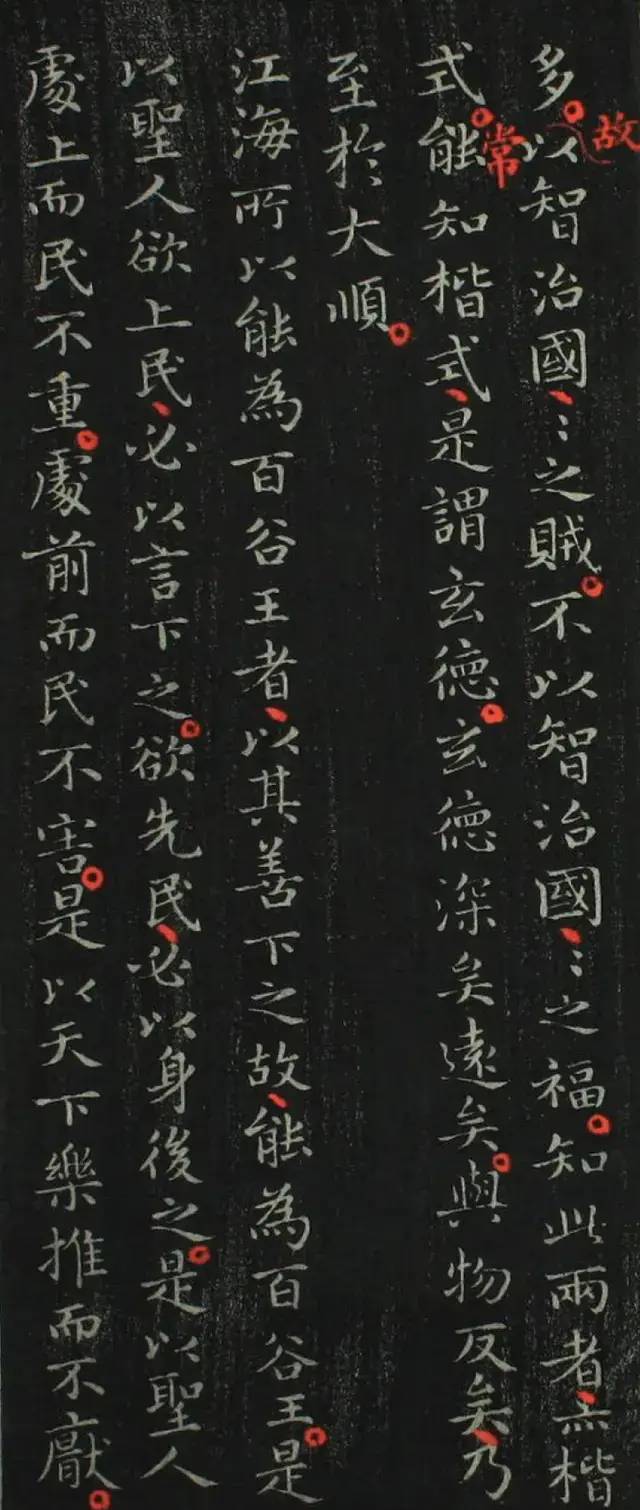 故
多。以智治國、〻之賊。不以智治國、〻之福。知此兩者、亦楷
常
式。能知楷式、是謂玄德。玄德深矣遠矣。與物反矣、乃
至於大順。
江海所以能為百谷王者、以其善下之故、能為百谷王。是
以聖人欲上民、必以言下之。欲先民、必以身後之。是以聖人
處上而民不重。處前而民不害。是以天下樂推而不厭。